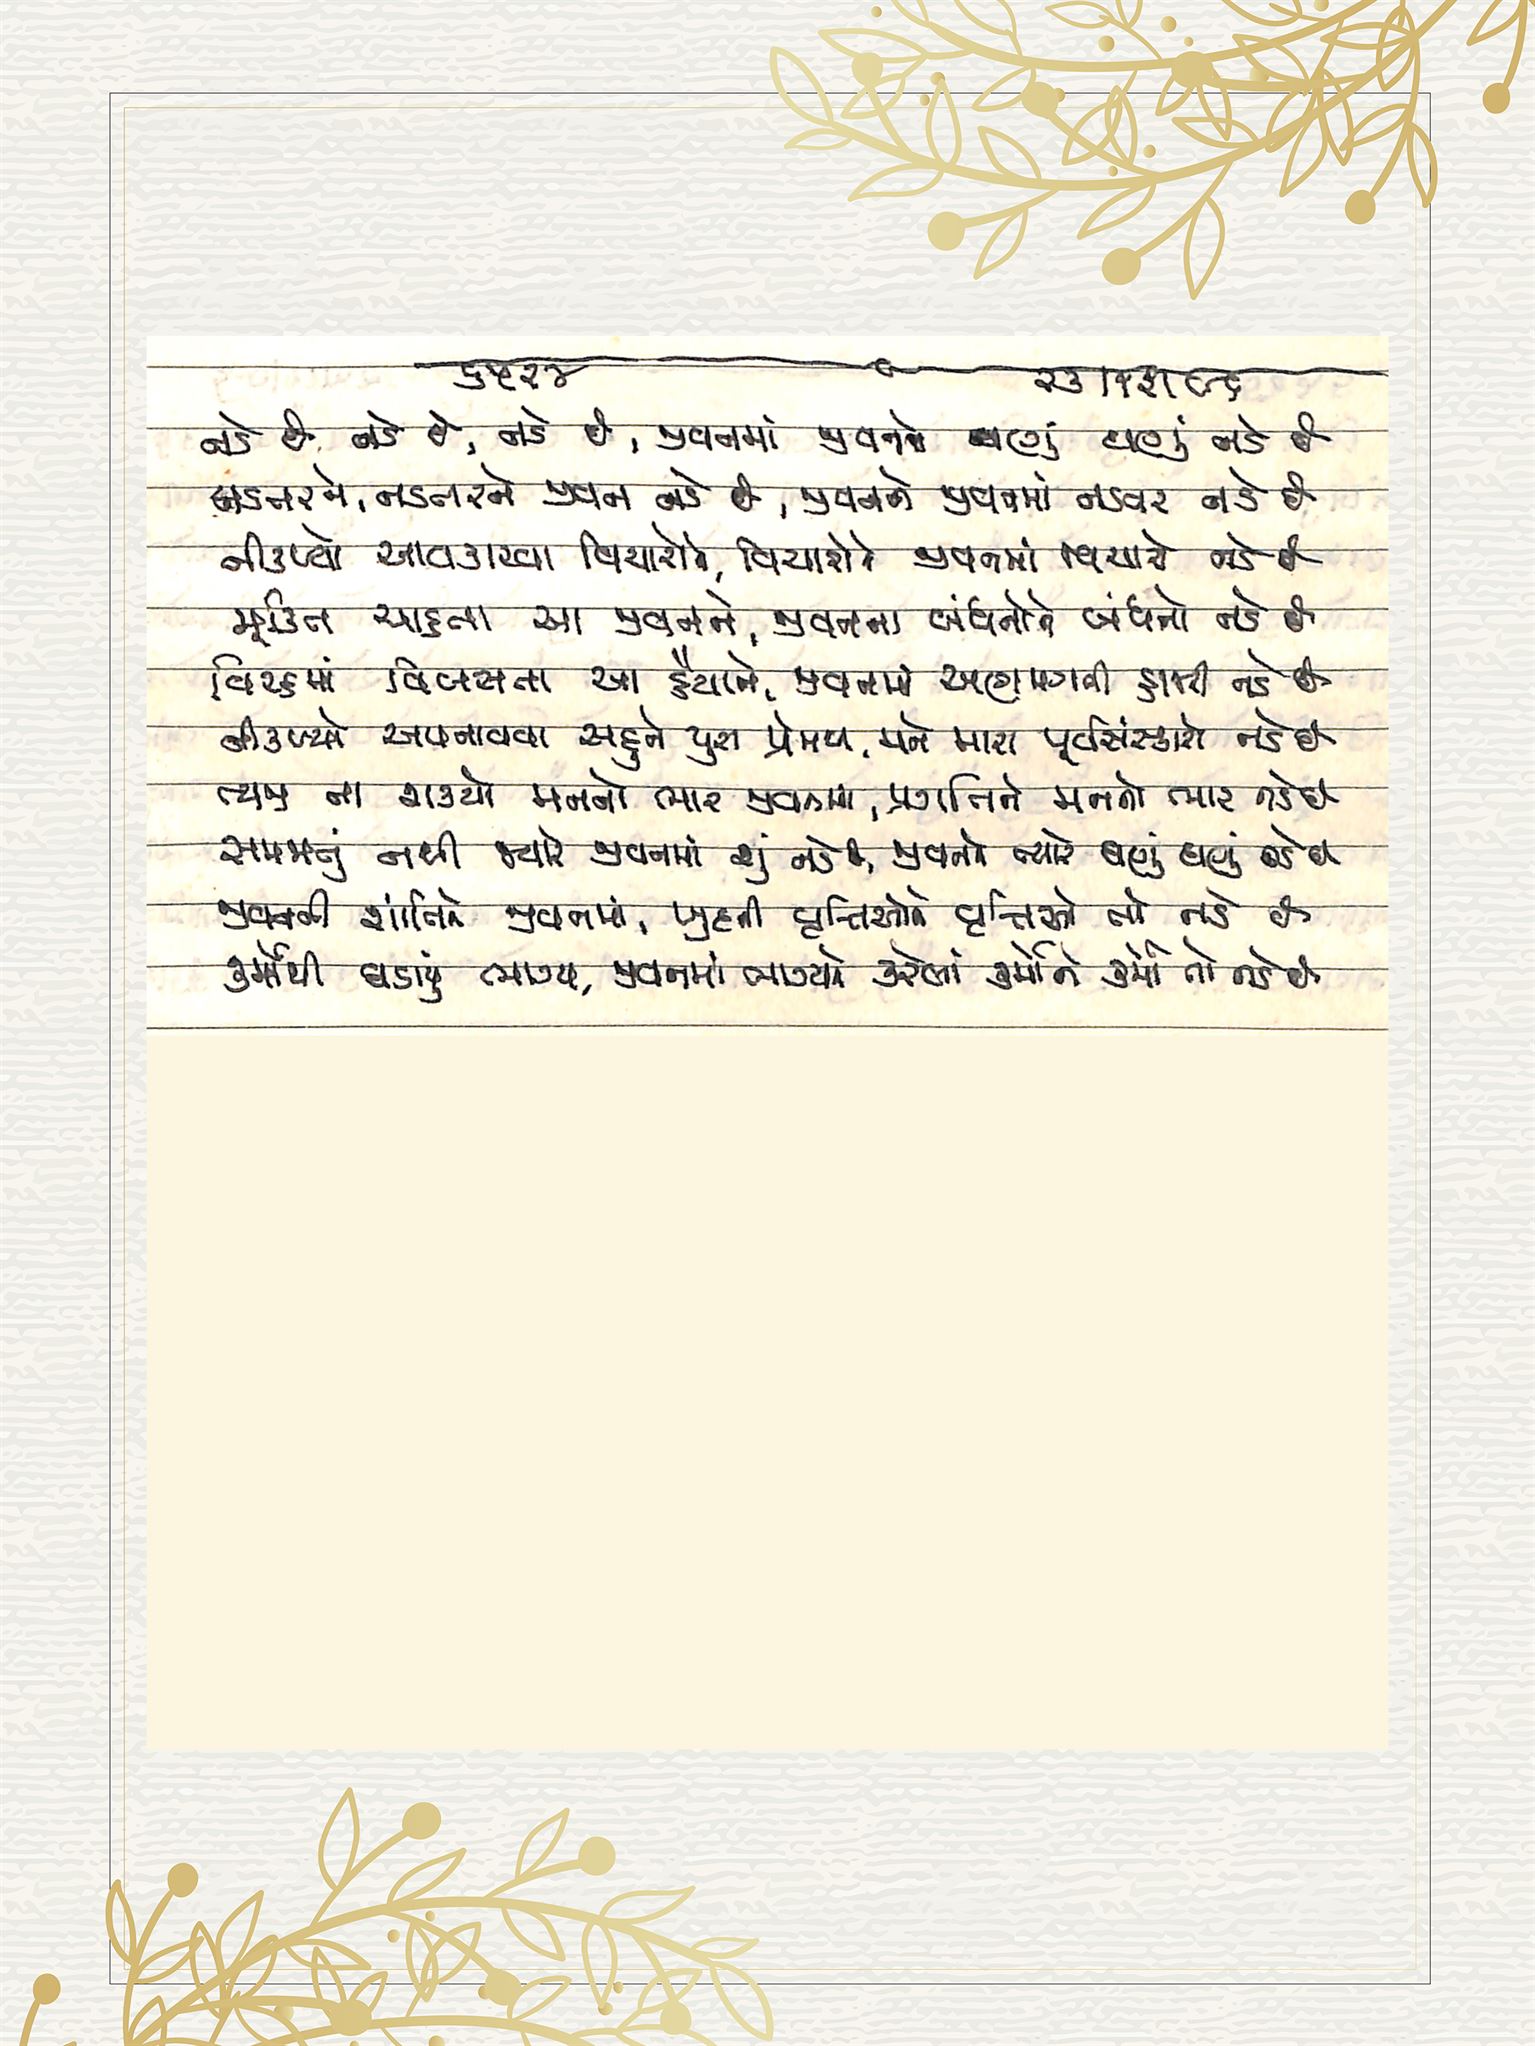 ૬૫૨૪ ૨૩।૧૨।૯૬
નડે છે નડે છે, નડે છે, જીવનમાં જીવનને ઘણું ઘણું નડે છે
નડતરને, નડતરને જીવન નડે છે, જીવનને જીવનમાં નડતર નડે છે
નીકળ્યો આવકારવા વિચારોને, વિચારોને જીવનમાં વિચારો નડે છે
મુક્તિ ચાહતા આ જીવનને, જીવનના બંધનોને બંધનો નડે છે
વિરહમાં વિલસતા આ હૈયાને, જીવનમાં અણગમાની હાજરી નડે છે
નીકળ્યો અપનાવવા સહુને પુરા પ્રેમથી, મને મારા પૂર્વસંસ્કારો નડે છે
ત્યજી ના શક્યો મનનો ભાર જીવનમાં, પ્રગતિને મનનો ભાર નડે છે
સમજાતું નથી જ્યારે જીવનમાં શું નડે છે, જીવનને ત્યારે ઘણું ઘણું નડે છે
જીવનની શાંતિને જીવનમાં, ખુદની વૃત્તિઓને વૃત્તિઓ તો નડે છે
કર્મોથી ઘડાયું ભાગ્ય, જીવનમાં ભાગ્યને કરેલાં કર્મોને કર્મો તો નડે છે